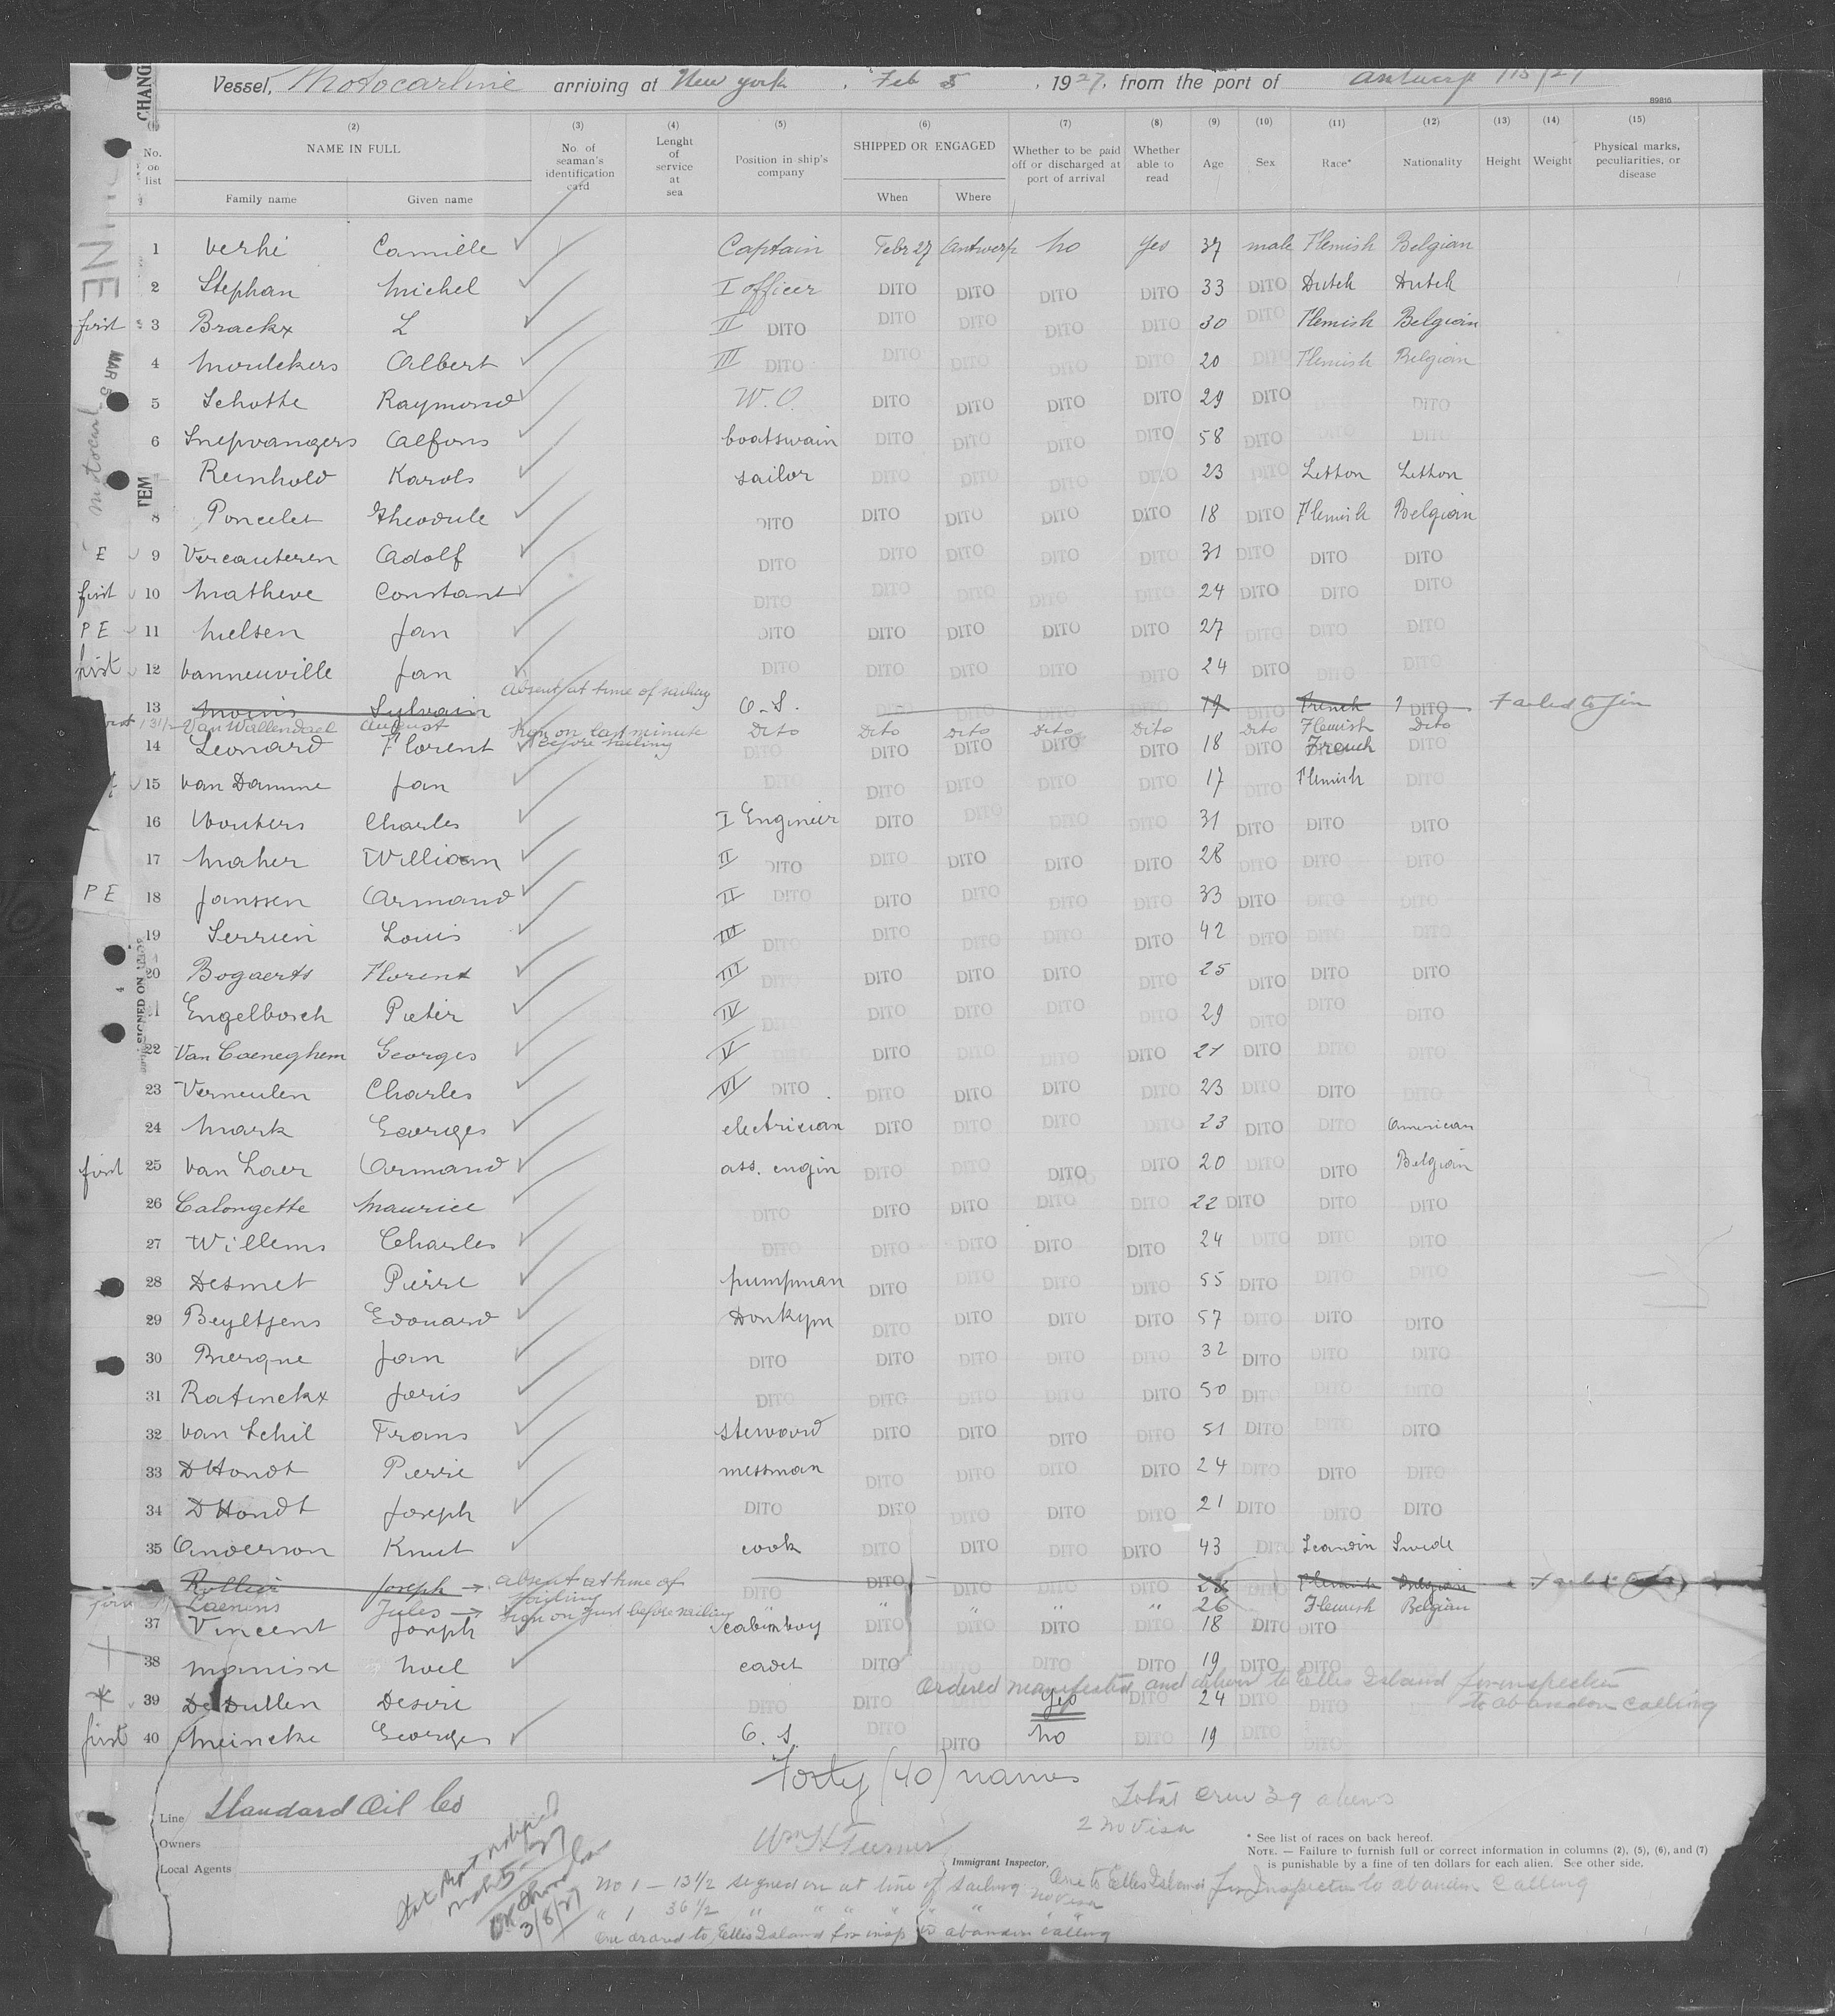 Vessel, Motocarline arriving at New york, Feb 5, 1927, from the port of Antwerp
89816
(2) (3) (4) (5) (6) (7) (8) (9) (10) (11) (12) (13) (14) (15)
No. on list NAME IN FULL Family name Given name No. of seaman's identification card Lenght of service at sea Position in ship's company SHIPPED OR ENGAGED When Where Whether to be paid off or discharged at port of arrival Whether able to read Age Sex Race* Nationality Height Weight Physical marks, peculiarities, or disease
1 Verhé Camille Captain Febr 27 Antwerp no Yes 37 male Flemish Belgian
2 Stephan Michel I officer DITO DITO DITO DITO 33 DITO Dutch Dutch
first 3 Brackx L II DITO DITO DITO DITO DITO 30 DITO Flemish Belgian
4 Moulckers Albert III DITO DITO DITO DITO DITO 20 DITO Flemish Belgian
5 Schotte Raymond W.O. DITO DITO DITO DITO 29 DITO DITO DITO
6 Snepvangers Alfons boatswain DITO DITO DITO DITO 58 DITO DITO DITO
Reinhold Karols sailor DITO DITO DITO DITO 23 DITO Letton Letton
8 Poncelet Theodule DITO DITO DITO DITO DITO 18 DITO Flemish Belgian
E 9 Vercauteren Adolf DITO DITO DITO DITO DITO 31 DITO DITO DITO
first 10 Matheve Constant DITO DITO DITO DITO DITO 24 DITO DITO DITO
P E 11 Nielsen Jan DITO DITO DITO DITO DITO 27 DITO DITO DITO
first 12 Vanneuville Jan DITO DITO DITO DITO DITO 24 DITO DITO DITO
13 Sylvain Absent at time of sailing O.S. DITO DITO DITO DITO 19 DITO French DITO Failed to join
13 1/2 Van Wallendael August Sign on last minute before sailing Dito Dito Dito Dito Dito Dito Flemish Dito
14 Leonard Florent DITO DITO DITO DITO DITO 18 DITO French DITO
15 Van Damme Jan DITO DITO DITO DITO DITO 17 DITO Flemish DITO
16 Wouters Charles I Engineir DITO DITO DITO DITO 31 DITO DITO DITO
17 Maher William II DITO DITO DITO DITO DITO 28 DITO DITO DITO
P E 18 Janssen Armand II DITO DITO DITO DITO DITO 33 DITO DITO DITO
19 Serrien Louis III DITO DITO DITO DITO DITO 42 DITO DITO DITO
20 Bogaerts Florent III DITO DITO DITO DITO DITO 25 DITO DITO DITO
Engelbosch Pieter IV DITO DITO DITO DITO DITO 29 DITO DITO DITO
22 Van Coeneghem Georges V DITO DITO DITO DITO DITO 21 DITO DITO DITO
23 Vermeulen Charles VI DITO DITO DITO DITO DITO 23 DITO DITO DITO
24 Mark Georges electrician DITO DITO DITO DITO 23 DITO DITO American
first 25 Van Laer Armand ass. engin DITO DITO DITO DITO 20 DITO DITO Belgian
26 Calongette Maurice DITO DITO DITO DITO DITO 22 DITO DITO DITO
27 Willems Charles DITO DITO DITO DITO DITO 24 DITO DITO DITO
28 Desmet Pierre pumpman DITO DITO DITO DITO 55 DITO DITO DITO
29 Beyltjens Edouard Donkym DITO DITO DITO DITO 57 DITO DITO DITO
30 Bierque Jan DITO DITO DITO DITO DITO 32 DITO DITO DITO
31 Ratinckx Joris DITO DITO DITO DITO DITO 50 DITO DITO DITO
32 Van Schil Frans steward DITO DITO DITO DITO 51 DITO DITO DITO
33 D'Hondt Pierre messman DITO DITO DITO DITO 24 DITO DITO DITO
34 D'Hondt Joseph DITO DITO DITO DITO DITO 21 DITO DITO DITO
35 Anderson Knut cook DITO DITO DITO DITO 43 DITO Scandin Swede
Joseph absent at time of sailing DITO DITO DITO DITO DITO 28 DITO Flemish Belgian
Laenens Jules sign on just before sailing " " " " " 26 Flemish Belgian
37 Vincent Joseph cabinboy DITO DITO DITO DITO 18 DITO DITO
38 Noel cadet DITO DITO DITO DITO 19 DITO DITO
Ordered manifested and deliver to Ellis Island for inspection to abandon calling
39 De Dullen Desiré DITO DITO yes DITO 24 DITO DITO
first 40 Meincke Georges O. S. DITO DITO no DITO 19 DITO DITO
Forty (40) names
Total crew 39 aliens
2 no visa
Line Standard Oil Co
Owners
Local Agents
Wm H Turner
Immigrant Inspector,
* See list of races on back hereof.
NOTE. — Failure to furnish full or correct information in columns (2), (5), (6), and (7) is punishable by a fine of ten dollars for each alien. See other side.
3/8/27
No 1 — 13 1/2 signed on at time of sailing no visa
" 1 36 1/2 " " " " " " "
One to Ellis Island for Inspection to abandon calling
One ordered to Ellis Island for insp to abandon calling